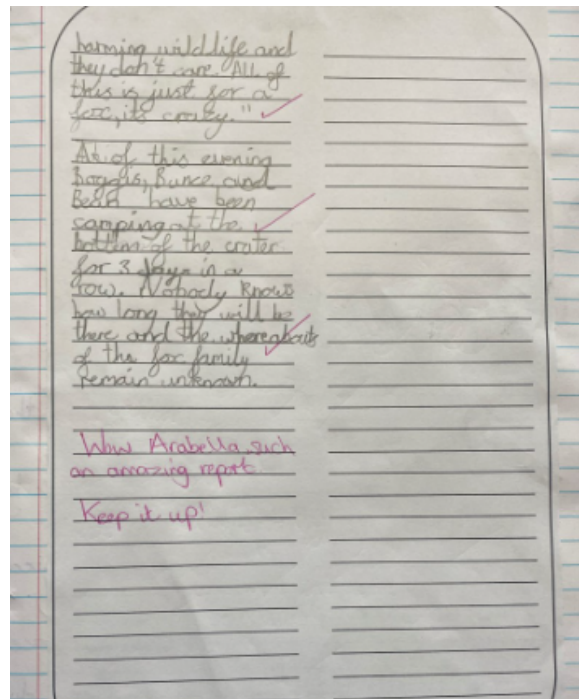 harming wildlife and
they don't care. All of
this is just for a
fox, its crazy."
As of this evening
Boggis, Bunce and
Bean have been
camping at the
bottom of the crater
for 3 days in a
row. Nobody knows
how long they will be
there and the whereabouts
of the fox family
remain unknown.
Wow Arabella such
an amazing report
Keep it up!